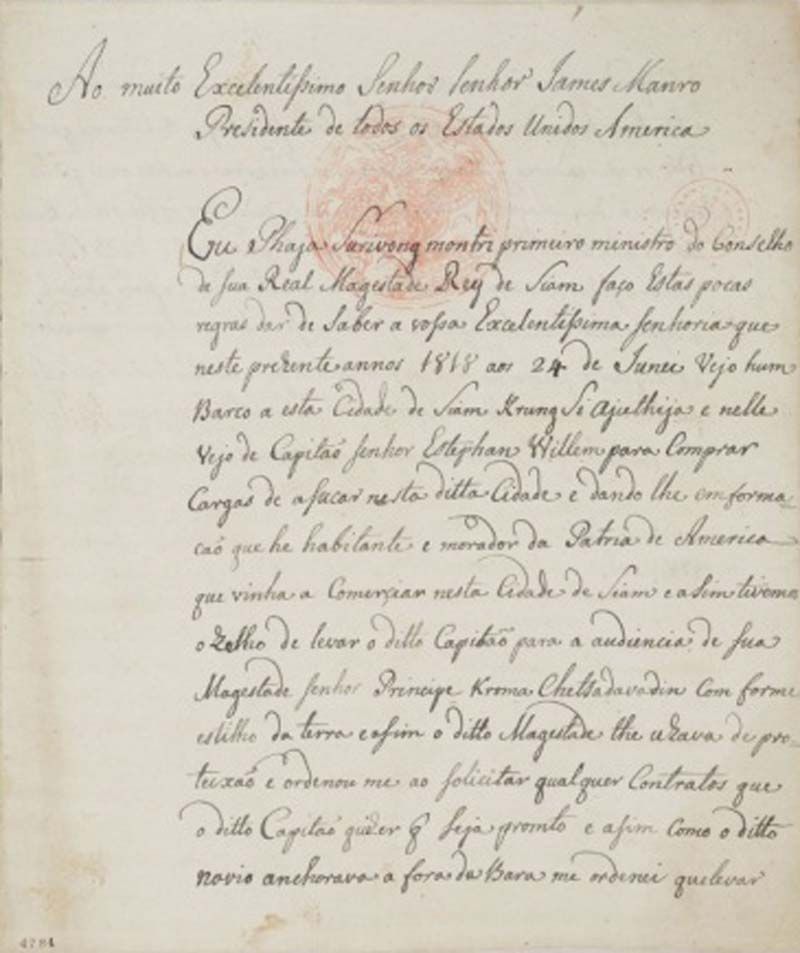 Ao muito Excelentissimo Senhor senhor James Manro
Presidente de todos os Estados Unidos America
Eu Phaja Suriwong montri primeiro ministro do Conselho
de sua Real Magestade Rey de Siam faço Estas pocas
regras dar de Saber a vossa Excelentissima senhoria que
neste prezente annos 1818 aos 24 de Junei Vejo hum
Barco a esta Cidade de Siam Krung Si Ajuthija e nelle
Vejo de Capitaõ senhor Estephan Willem para Comprar
Cargas de asucar nesta ditta Cidade e dando lhe emforma
caõ que he habitante e morador da Patria de America
que vinha a Comerçiar nesta Cidade de Siam e asim tivemos
o Zelho de levar o ditto Capitaõ para a audiencia de sua
Magestade senhor Principe Kroma Chetsadavadin Com forme
estilho da terra e asim o ditto Magestade lhe uzava de pro-
teixaõ e ordenou me ao solicitar qualquer Contratos que
o ditto Capitaõ quizer q seja promto e asim Como o ditto
navio anchorava a fora da Bara me ordenei quelevar
4784